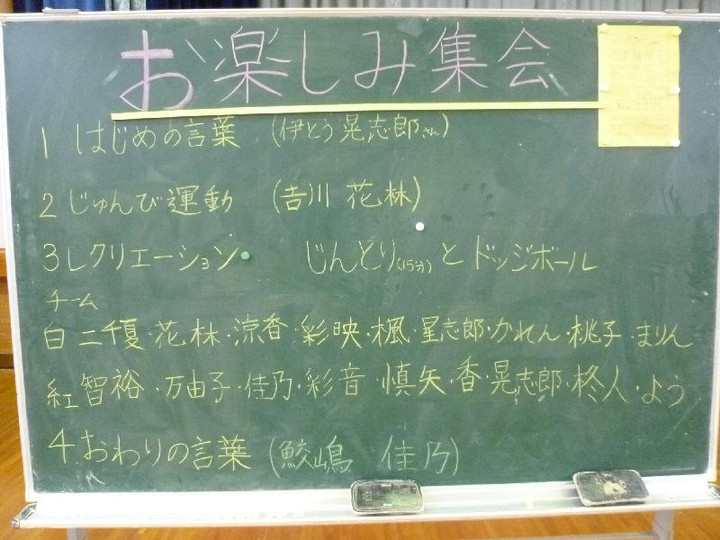 お楽しみ集会
1 はじめの言葉 (伊とう 晃志郎さん)
2 じゅんび運動 (吉川 花林)
3 レクリエーション じんとり(15分)とドッジボール
チーム
白 二千夏・花林・涼香・彩映・楓・星志郎・かれん・桃子・まりん
紅 智裕・万由子・佳乃・彩音・慎矢・香・晃志郎・柊人・よう
4 おわりの言葉 (鮫嶋 佳乃)